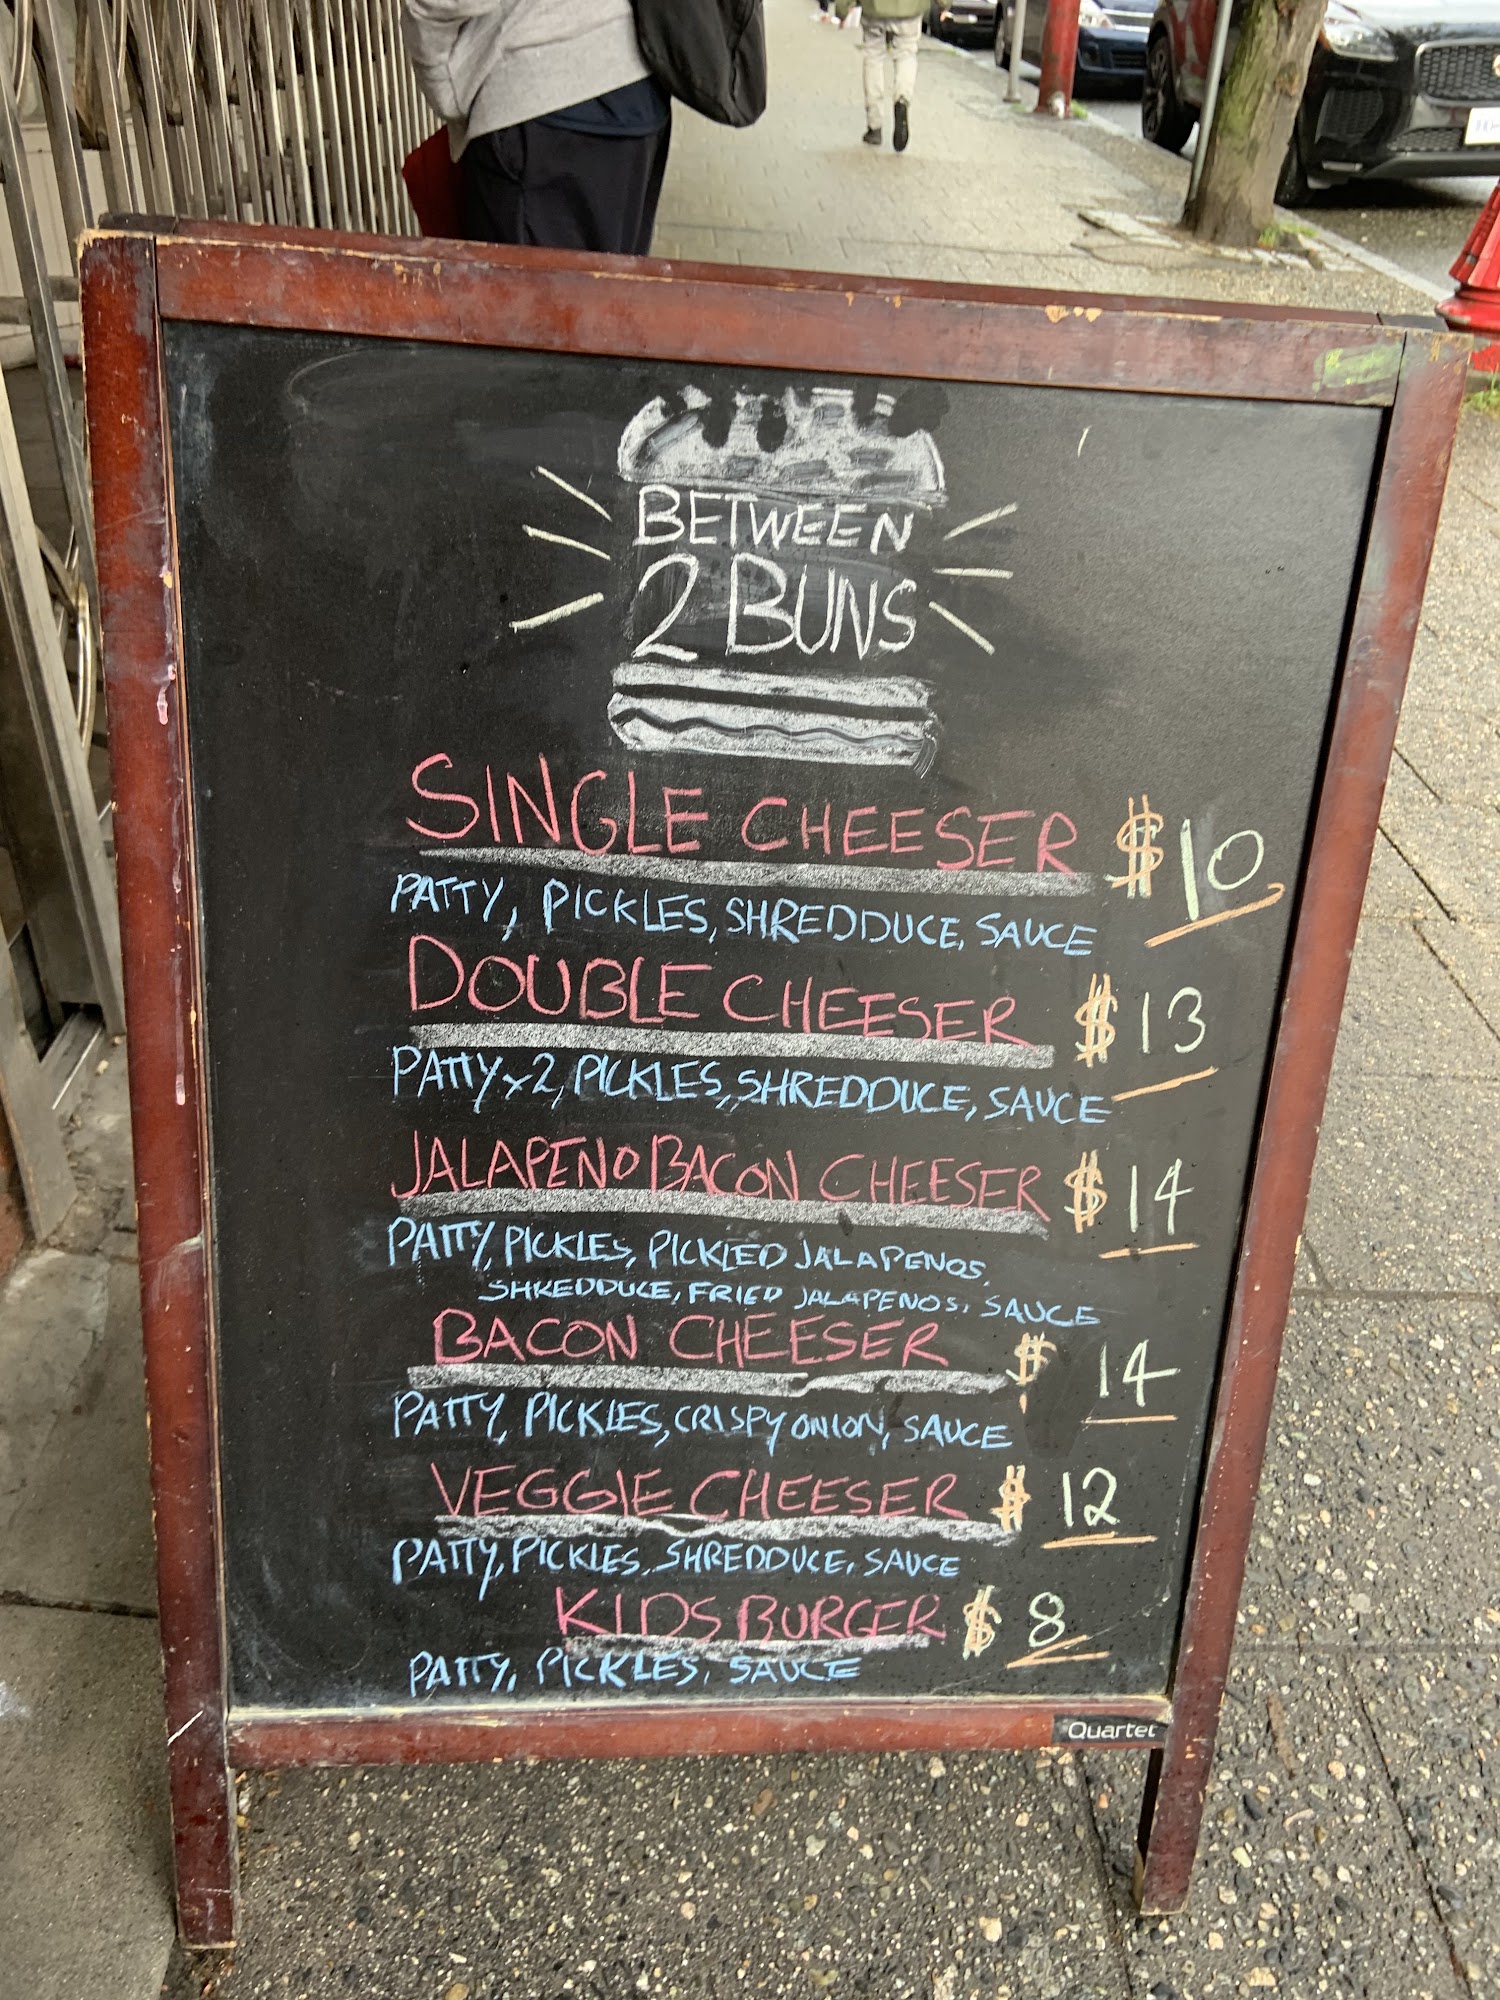 BETWEEN
2 BUNS
SINGLE CHEESER $10
PATTY, PICKLES, SHREDDUCE, SAUCE
DOUBLE CHEESER $13
PATTY x2, PICKLES, SHREDDUCE, SAUCE
JALAPENO BACON CHEESER $14
PATTY, PICKLES, PICKLED JALAPENOS,
SHREDDUCE, FRIED JALAPENOS, SAUCE
BACON CHEESER $14
PATTY, PICKLES, CRISPY ONION, SAUCE
VEGGIE CHEESER $12
PATTY, PICKLES, SHREDDUCE, SAUCE
KIDS BURGER $8
PATTY, PICKLES, SAUCE
Quartet